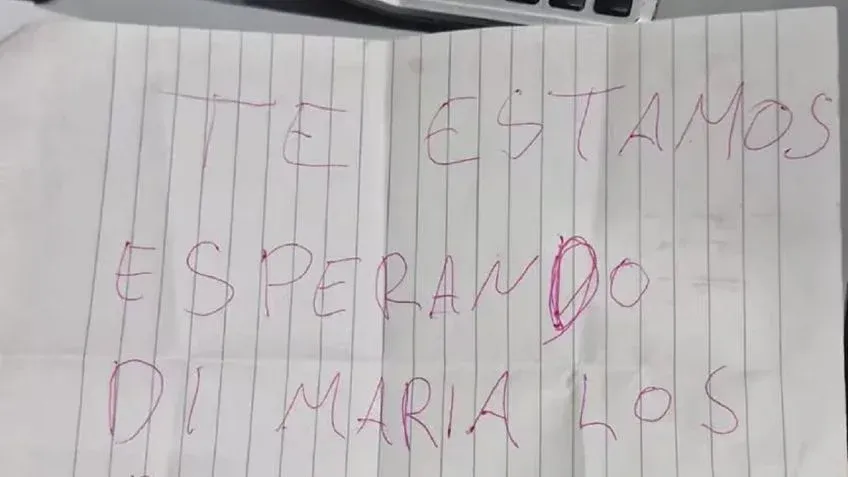 TE ESTAMOS
ESPERANDO
DI MARIA LOS